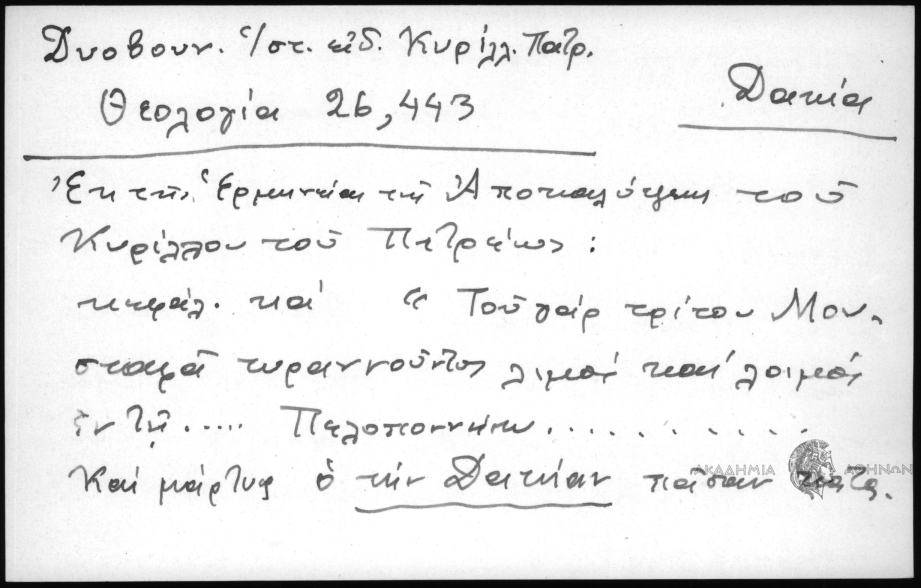 Δυοβουν. ἔ/στ. εἰδ. Κυρίλλ. Πατρ.
Θεολογία 26,443
Δακία
Ἐκ τῆς Ἑρμηνείας τῆς Ἀποκαλύψεως τοῦ
Κυρίλλου τοῦ Πατρέως:
κεφάλ. κά “Τοῦ γάρ τρίτου Μου-
σταφᾶ τυραννοῦντος λιμοί καί λοιμοί
ἐν τῇ ..... Πελοποννήσῳ ...........
Καί μάρτυς ὁ τήν Δακίαν πᾶσαν κατα-
ΑΚΑΔΗΜΙΑ ΑΘΗΝΩΝ